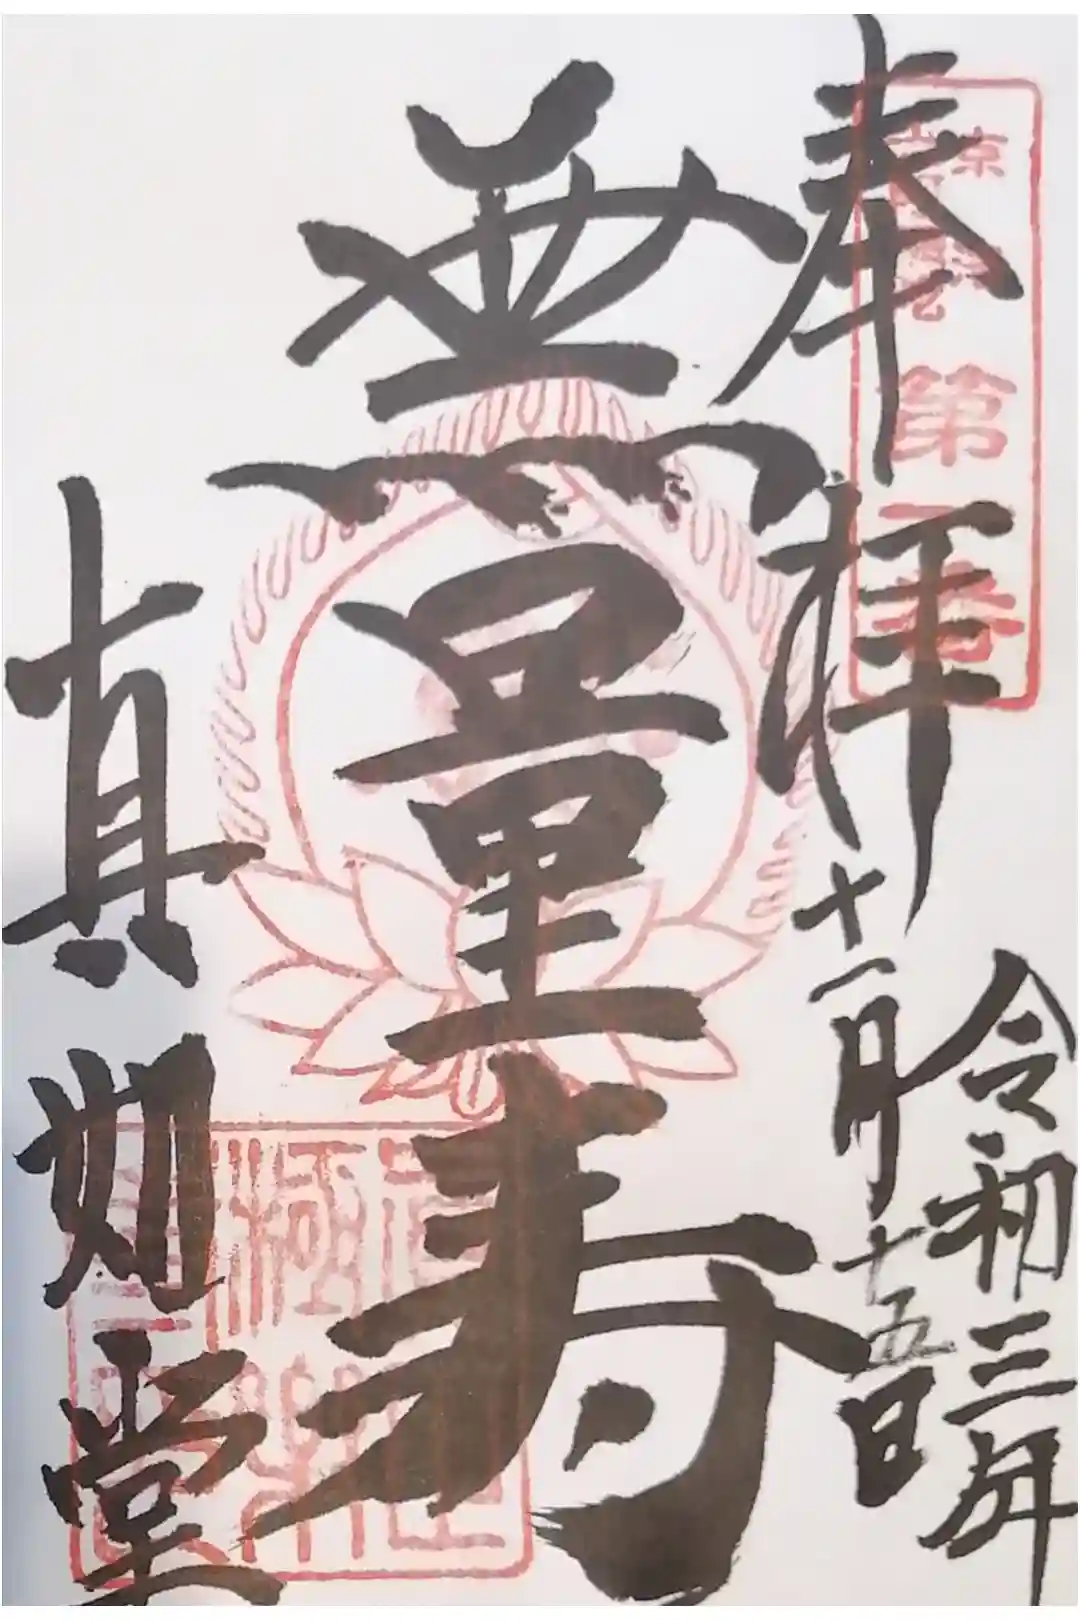 奉拝
令和三年
十一月十五日
無量寿
真如堂
第一番